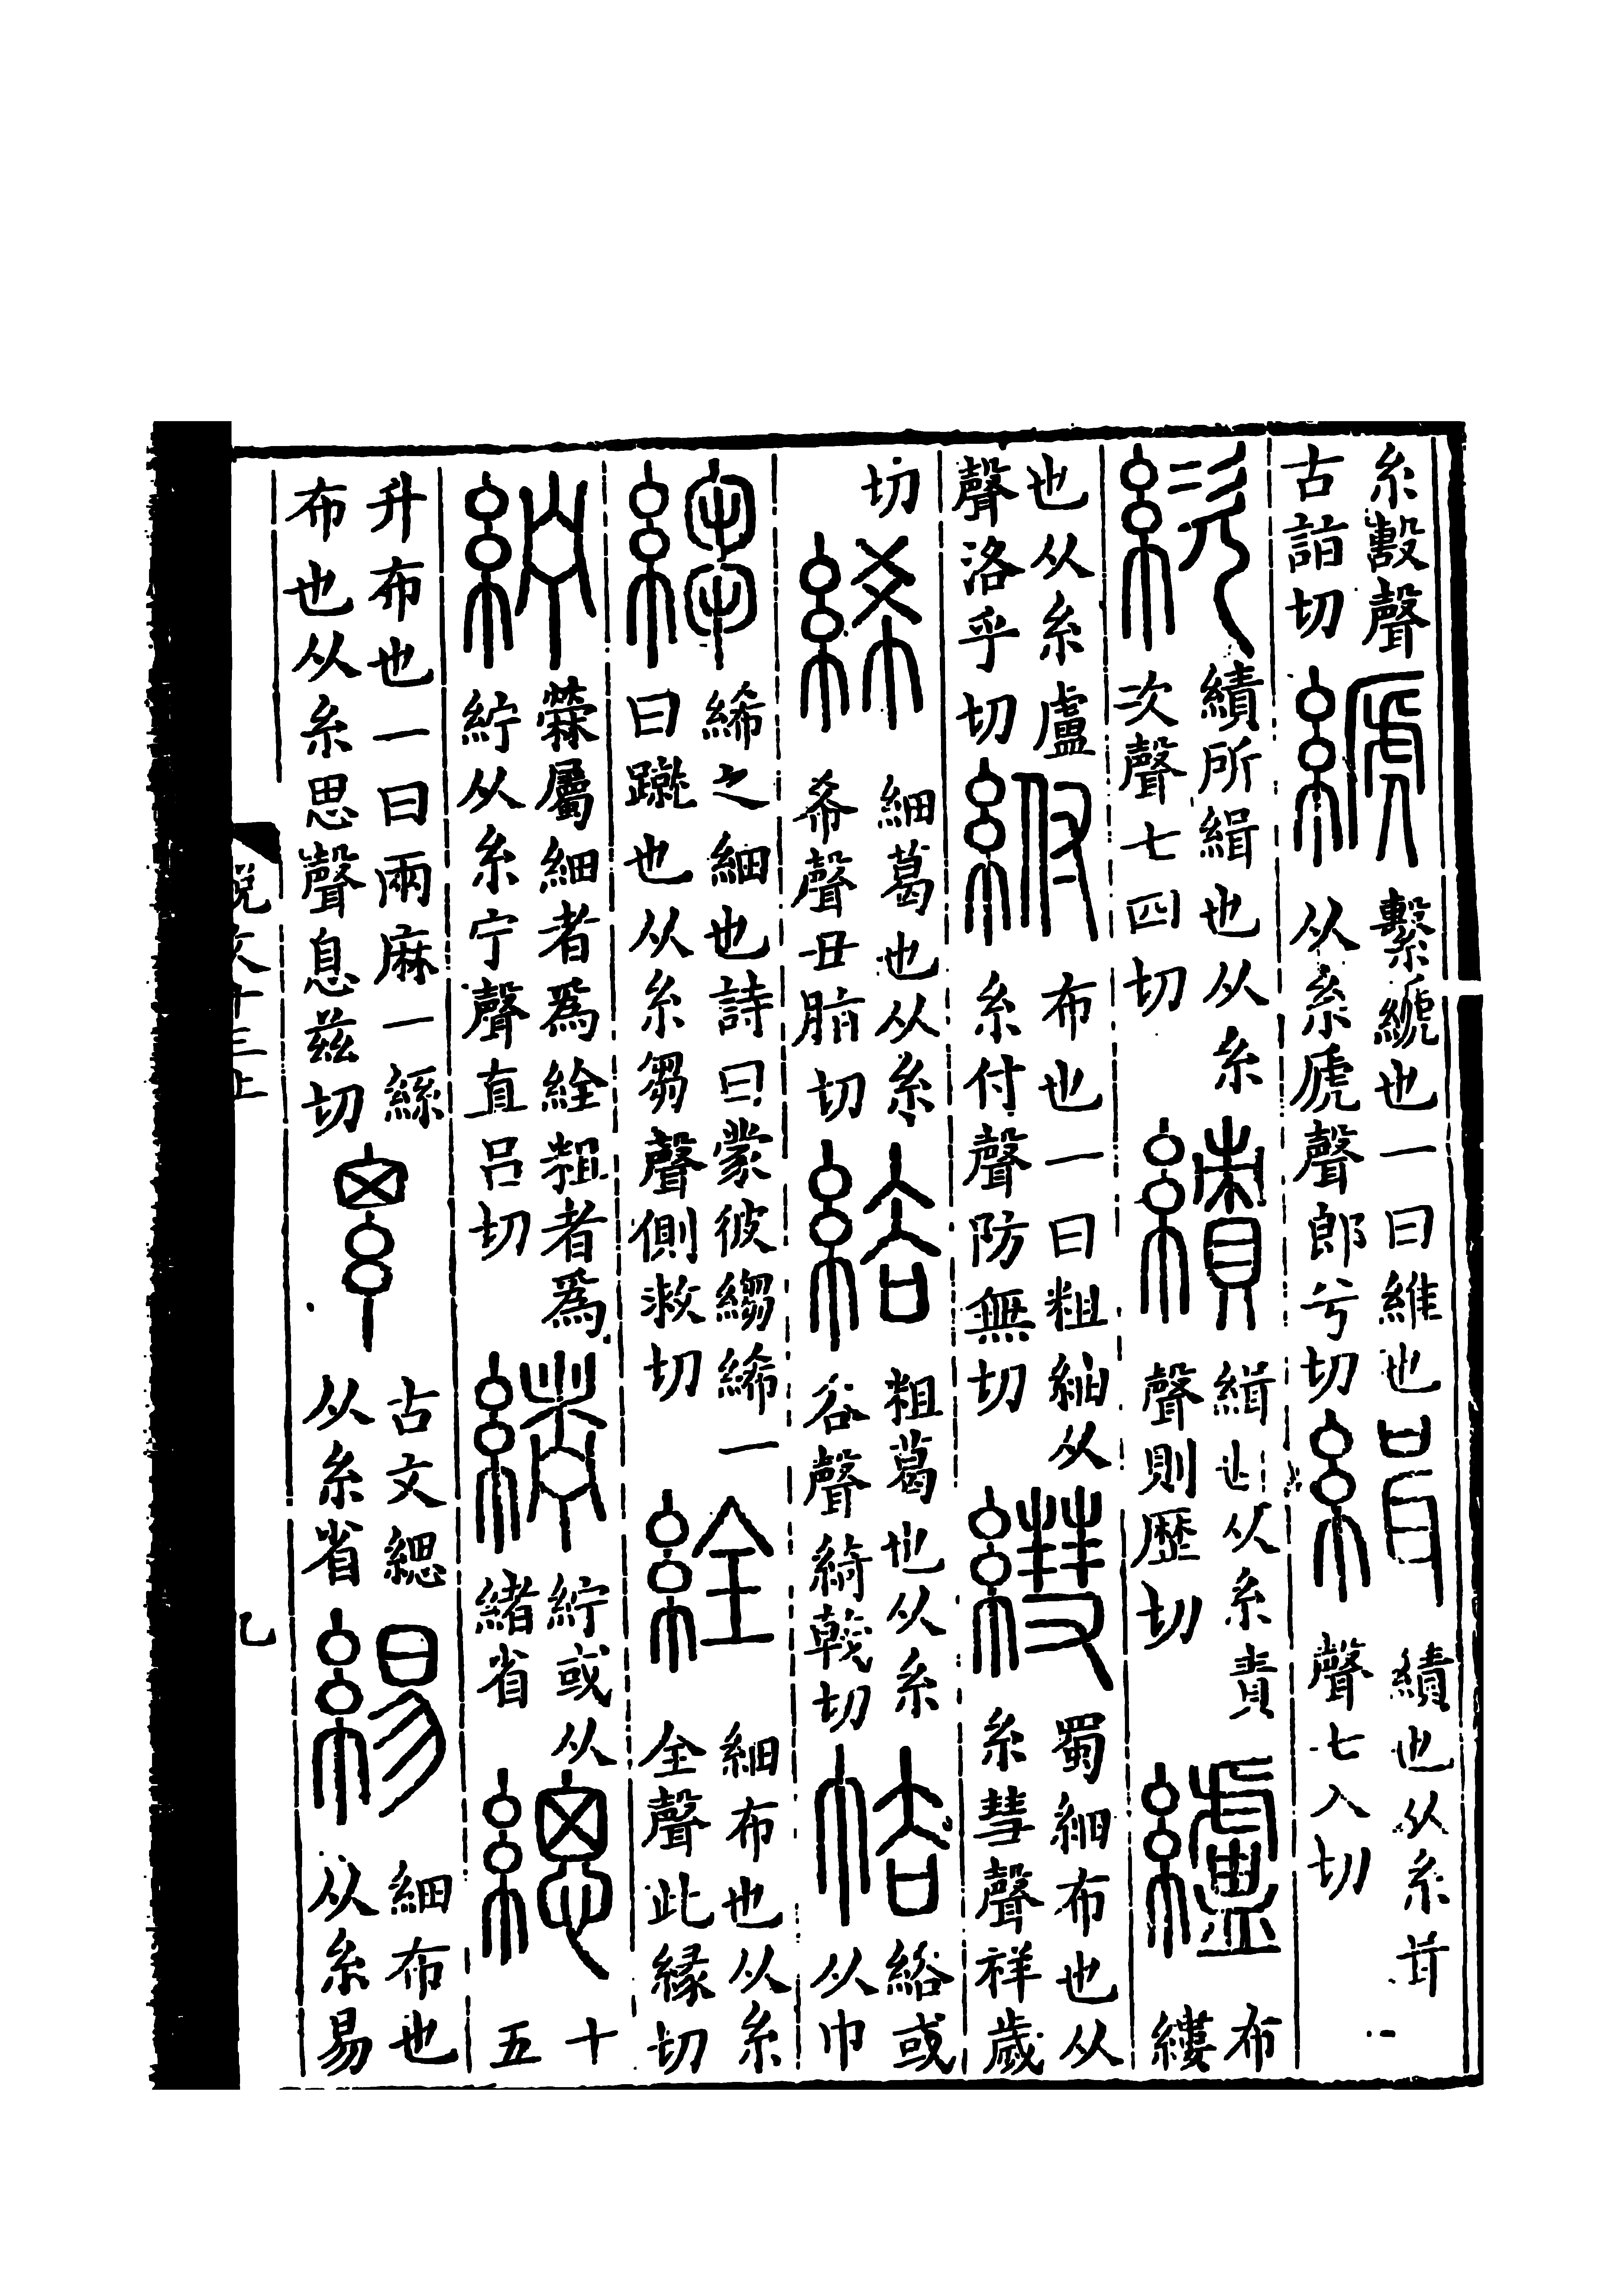 糸毄聲古詣切𦃇繫𦃇也一曰維也从糸虒聲郎兮切緝績也从糸咠聲七入切
絘績所緝也从糸次聲七四切績緝也从糸責聲則歷切纑布縷
也从糸盧聲洛乎切紨布也一曰粗紬从糸付聲防無切𦄑蜀細布也从糸彗聲祥歲
切絺細葛也从糸希聲丑脂切綌粗葛也从糸谷聲綺戟切綌或从巾
縐絺之細也詩曰蒙彼縐絺一曰蹴也从糸芻聲側救切絟細布也从糸全聲此緣切
紵檾屬細者爲絟粗者爲紵从糸宁聲直呂切紵或从緒省緦十五
升布也一曰兩麻一絲布也从糸思聲息茲切古文緦从糸省緆細布也从糸易
說文十三上